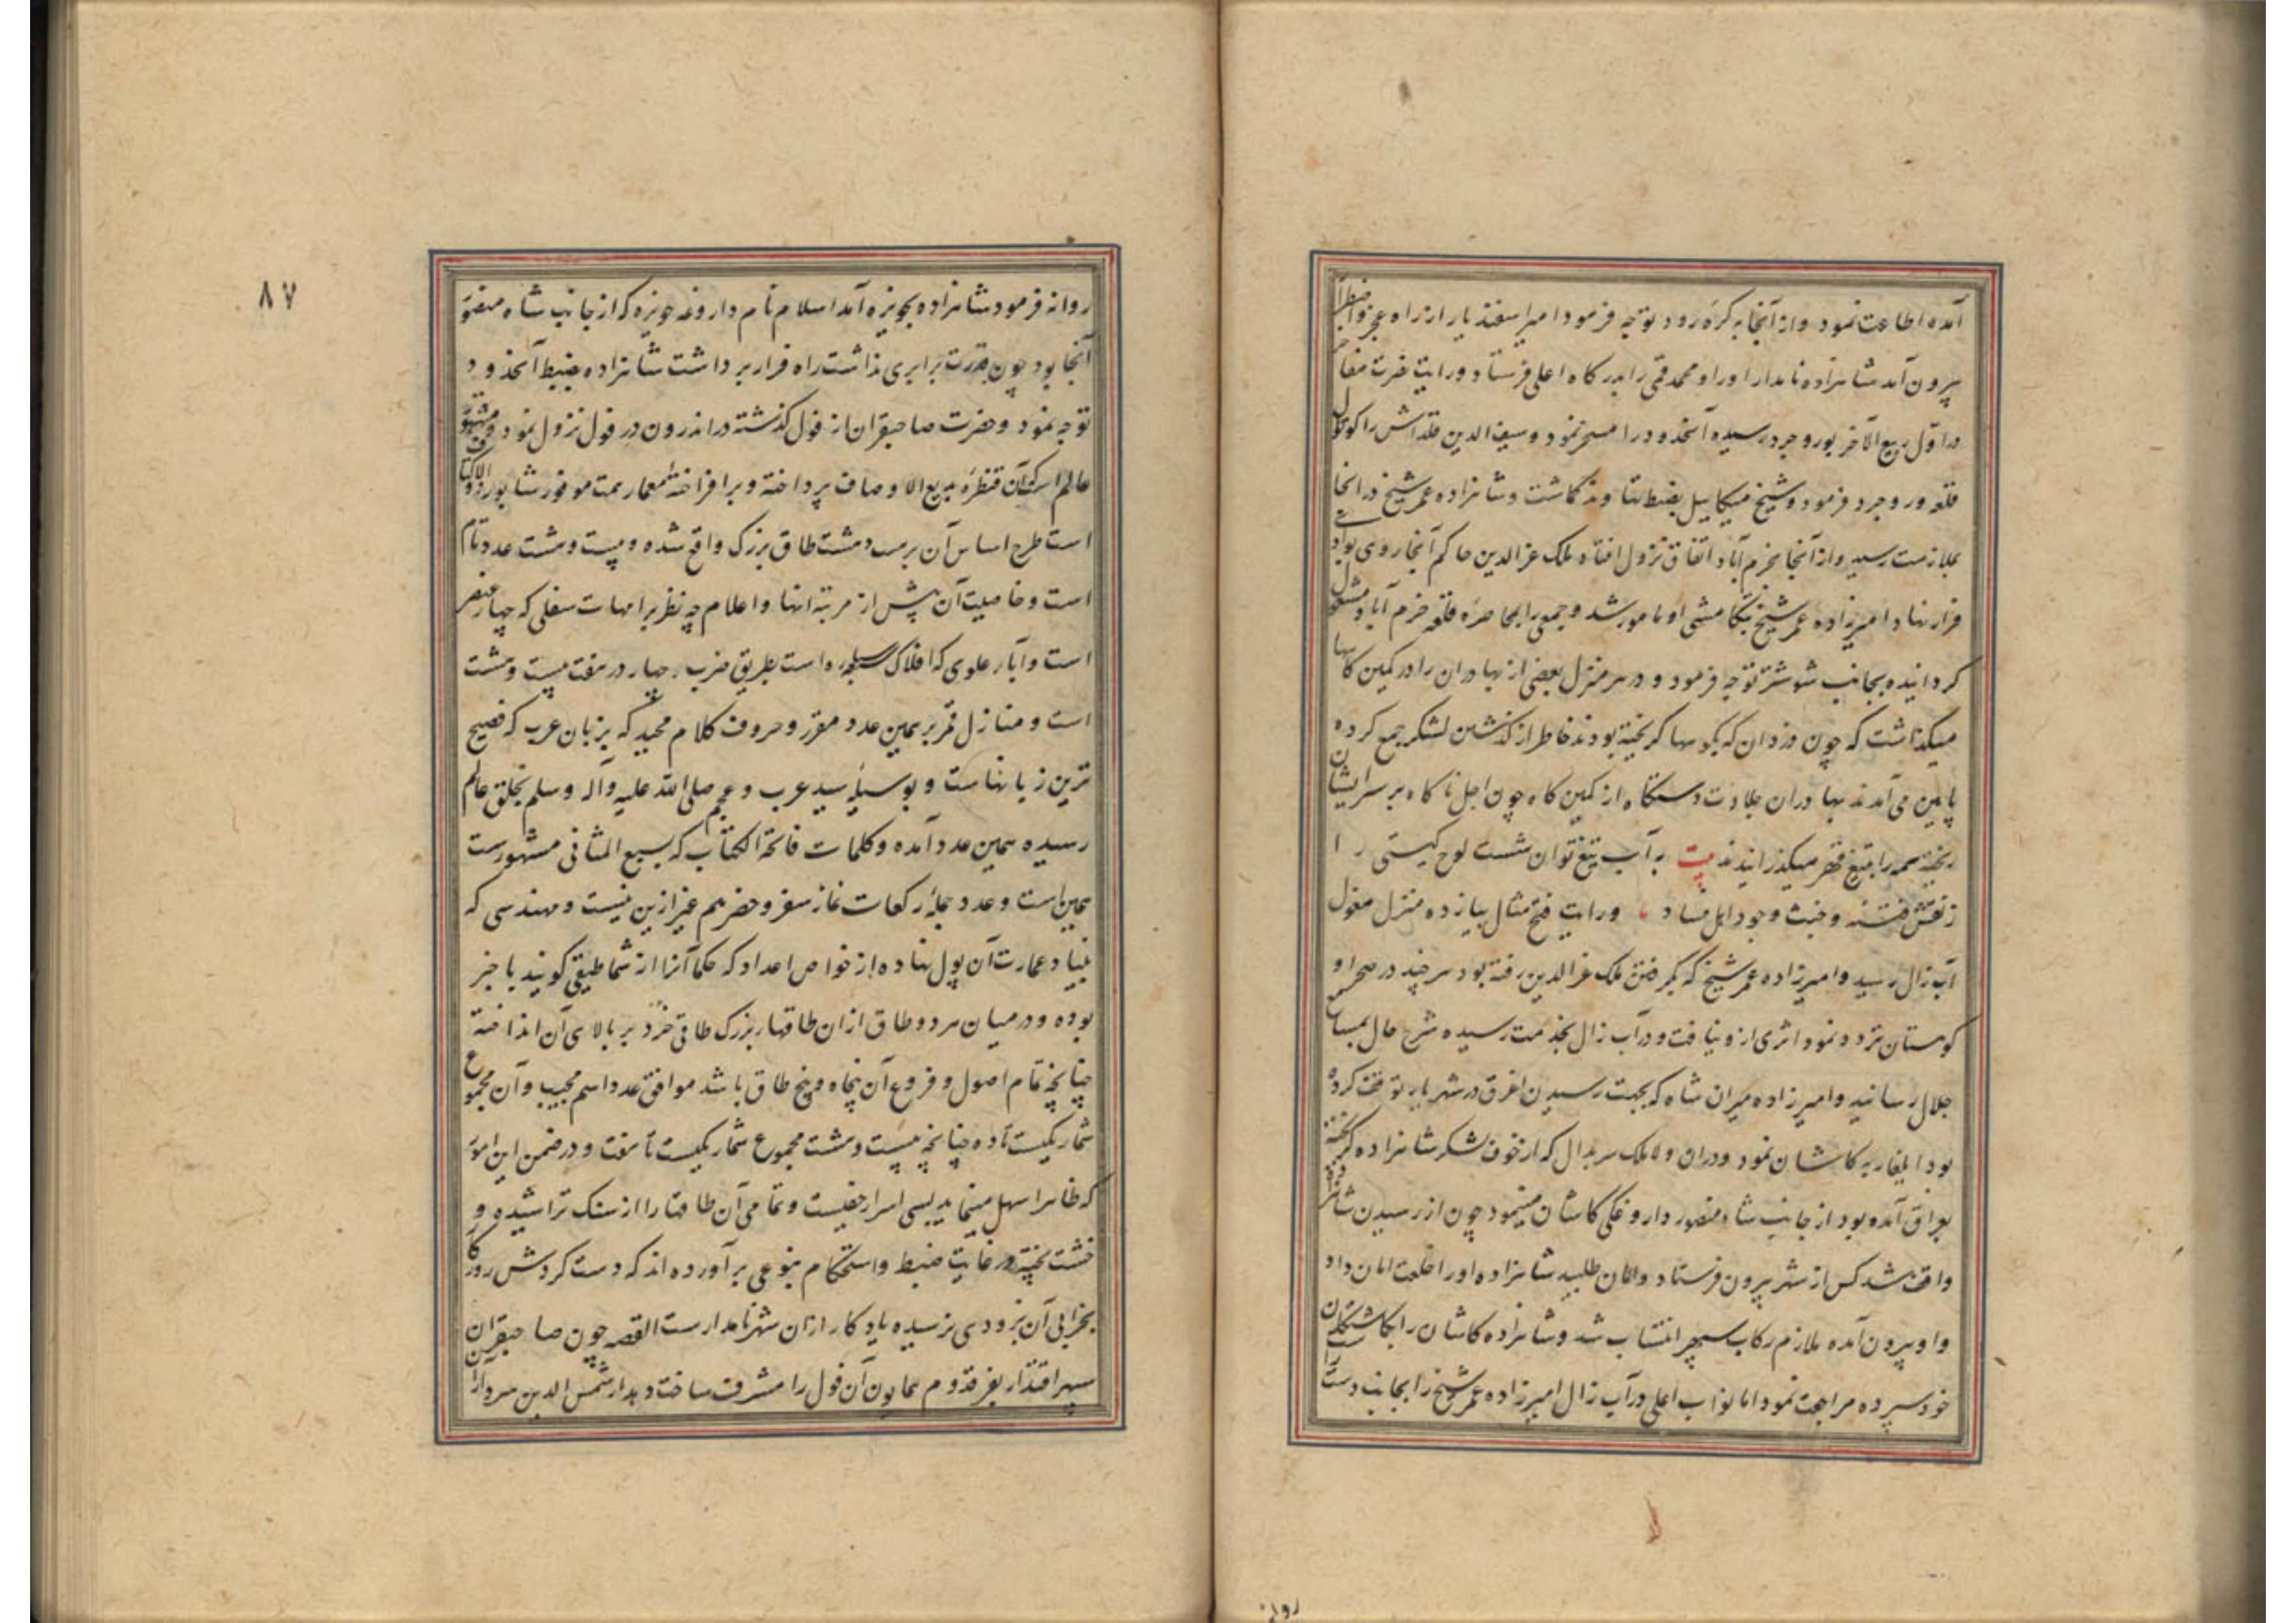 آمده اطاعت نمود و از آنجا به کره رود توجه فرمود امیر اسفندیار از راه عجز و اضطرار
بیرون آمد شاهزاده نامدار او را و محمد قمی را بدرگاه اعلی فرستاد و رایت نصرت
در اول ربیع الآخر بوروجرد رسیده آنحدود را مسخر نمود و سیف الدین قلداش را کوتوال
قلعه وروجرد فرمود و شیخ میکاییل بضبط نهاوند گماشت و شاهزاده عمر شیخ در آنجا
بملازمت رسید و از آنجا بخرم آباد اتفاق نزول افتاد ملک عزالدین حاکم آنجا روی بوادی
فرار نهاد امیرزاده عمر شیخ بتکامشی او مامور شد و جمعی را بمحاصره قلعه خرم آباد مشغول
گردانیده بجانب شوشتر توجه فرمود و در هر منزل بعضی از بهادران را در کمین گاهها
میگذاشت که چون دزدان که بکوهها گریخته بودند خاطر از گذشتن لشکر جمع کرده
پایین می آمدند بهادران جلادت دستگاه از کمین گاه چون اجل ناگاه بر سر ایشان
ریخته همه را بتیغ قهر میگذرانیدند بیت به آب تیغ توان شست لوح گیتی را
ز نقش فتنه و خبث وجود اهل فساد و رایت فتح مثال بیازده منزل مغول
آب زال رسید و امیرزاده عمر شیخ که بگرفتن ملک عزالدین رفته بود هر چند در صحرا و
کوهستان تردد نمود اثری ازو نیافت و در آب زال بخدمت رسیده شرح حال بمسامع
جلال رسانید و امیرزاده میران شاه که بجهت رسیدن اغرق در شهریار توقف کرده
بود ایلغار به کاشان نمود و در آن ولا ملک سربدال که از خوف لشکر شاهزاده گریخته
بعراق آمده بود از جانب شاه منصور داروغگی کاشان مینمود چون از رسیدن شاهزاده
واقف شد کس از شهر بیرون فرستاد و امان طلبید شاهزاده او را خلعت امان داد
و او بیرون آمده ملازم رکاب سپهر انتساب شد و شاهزاده کاشان را بگماشتگان
خود سپرده مراجعت نمود اما نواب اعلی در آب زال امیرزاده عمر شیخ را بجانب دست راست
روانه
۸۷
روانه فرمود شاهزاده بحویزه آمد اسلام نام داروغه حویزه که از جانب شاه منصور
آنجا بود چون قدرت برابری نداشت راه فرار برداشت شاهزاده بضبط آنحدود
توجه نمود و حضرت صاحبقران از فول گذشته در اندرون دز فول نزول نمود و مشهور
عالم است که آن قنطره بدیع الاوصاف پرداخته و برافراخته معمار همت موفور شاپور ذوالاکتاف
است طرح اساس آن بر بیست و هشت طاق بزرگ واقع شده و بیست و هشت عدد تام
است و خاصیت آن پیش از مرتبه انها و اعلام چه نظر بر امهات سفلی که چهار عنصر
است و آباء علوی که افلاک سبعه است بطریق ضرب چهار در هفت بیست و هشت
است و منازل قمر بر همین عدد مقرر و حروف کلام مجید که بزبان عرب که فصیح
ترین زبانهاست و بوسیله سید عرب و عجم صلی الله علیه وآله وسلم بخلق عالم
رسیده همین عدد آمده و کلمات فاتحة الکتاب که بسبع المثانی مشهورست
همین است و عدد جمله رکعات نماز سفر و حضر هم غیر ازین نیست و مهندسی که
بنیاد عمارت آن پول نهاده از خواص اعداد که حکما آنرا ارثماطیقی گویند باخبر
بوده و در میان هر دو طاق از آن طاقهاء بزرگ طاقی خرد بر بالای آن انداخته
چنانچه تمام اصول و فروع آن پنجاه و پنج طاق باشد موافق عدد اسم مجیب و آن مجموع
شمار یکیست تا ده چنانچه بیست و هشت مجموع شمار یکیست تا هفت و در ضمن این امور
که ظاهرا سهل مینماید بسی اسرار خفیست و تمامی آن طاقها را از سنگ تراشیده و
خشت پخته در غایت ضبط و استحکام بنوعی برآورده اند که دست گردش روزگار
بخرابی آن بزودی نرسیده یادگار از آن شهر نامدارست القصه چون صاحبقران
سپهر اقتدار بفر قدوم همایون آن فول را مشرف ساخت شمس الدین